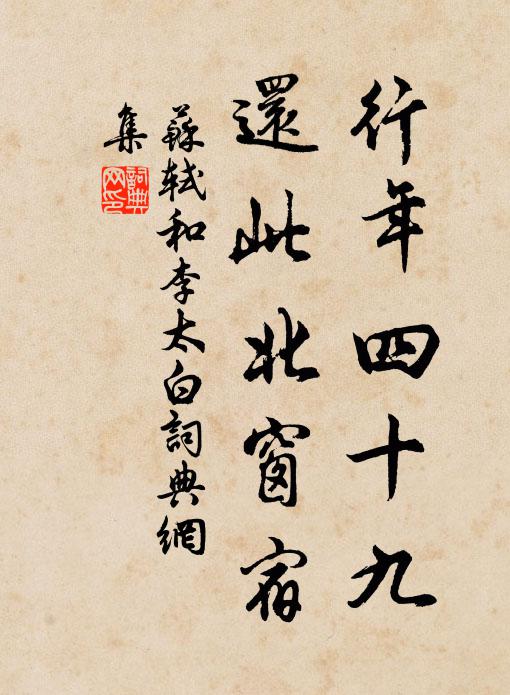 行年四十九
還此北窗宿
蘇軾和李太白詞典網
集
詞典
网印